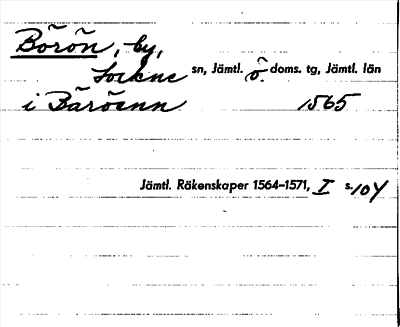 Börön, by,
Lockne sn, Jämtl. ö. doms. tg, Jämtl. län
i Bäröenn 1565
Jämtl. Räkenskaper 1564–1571, I s. 104